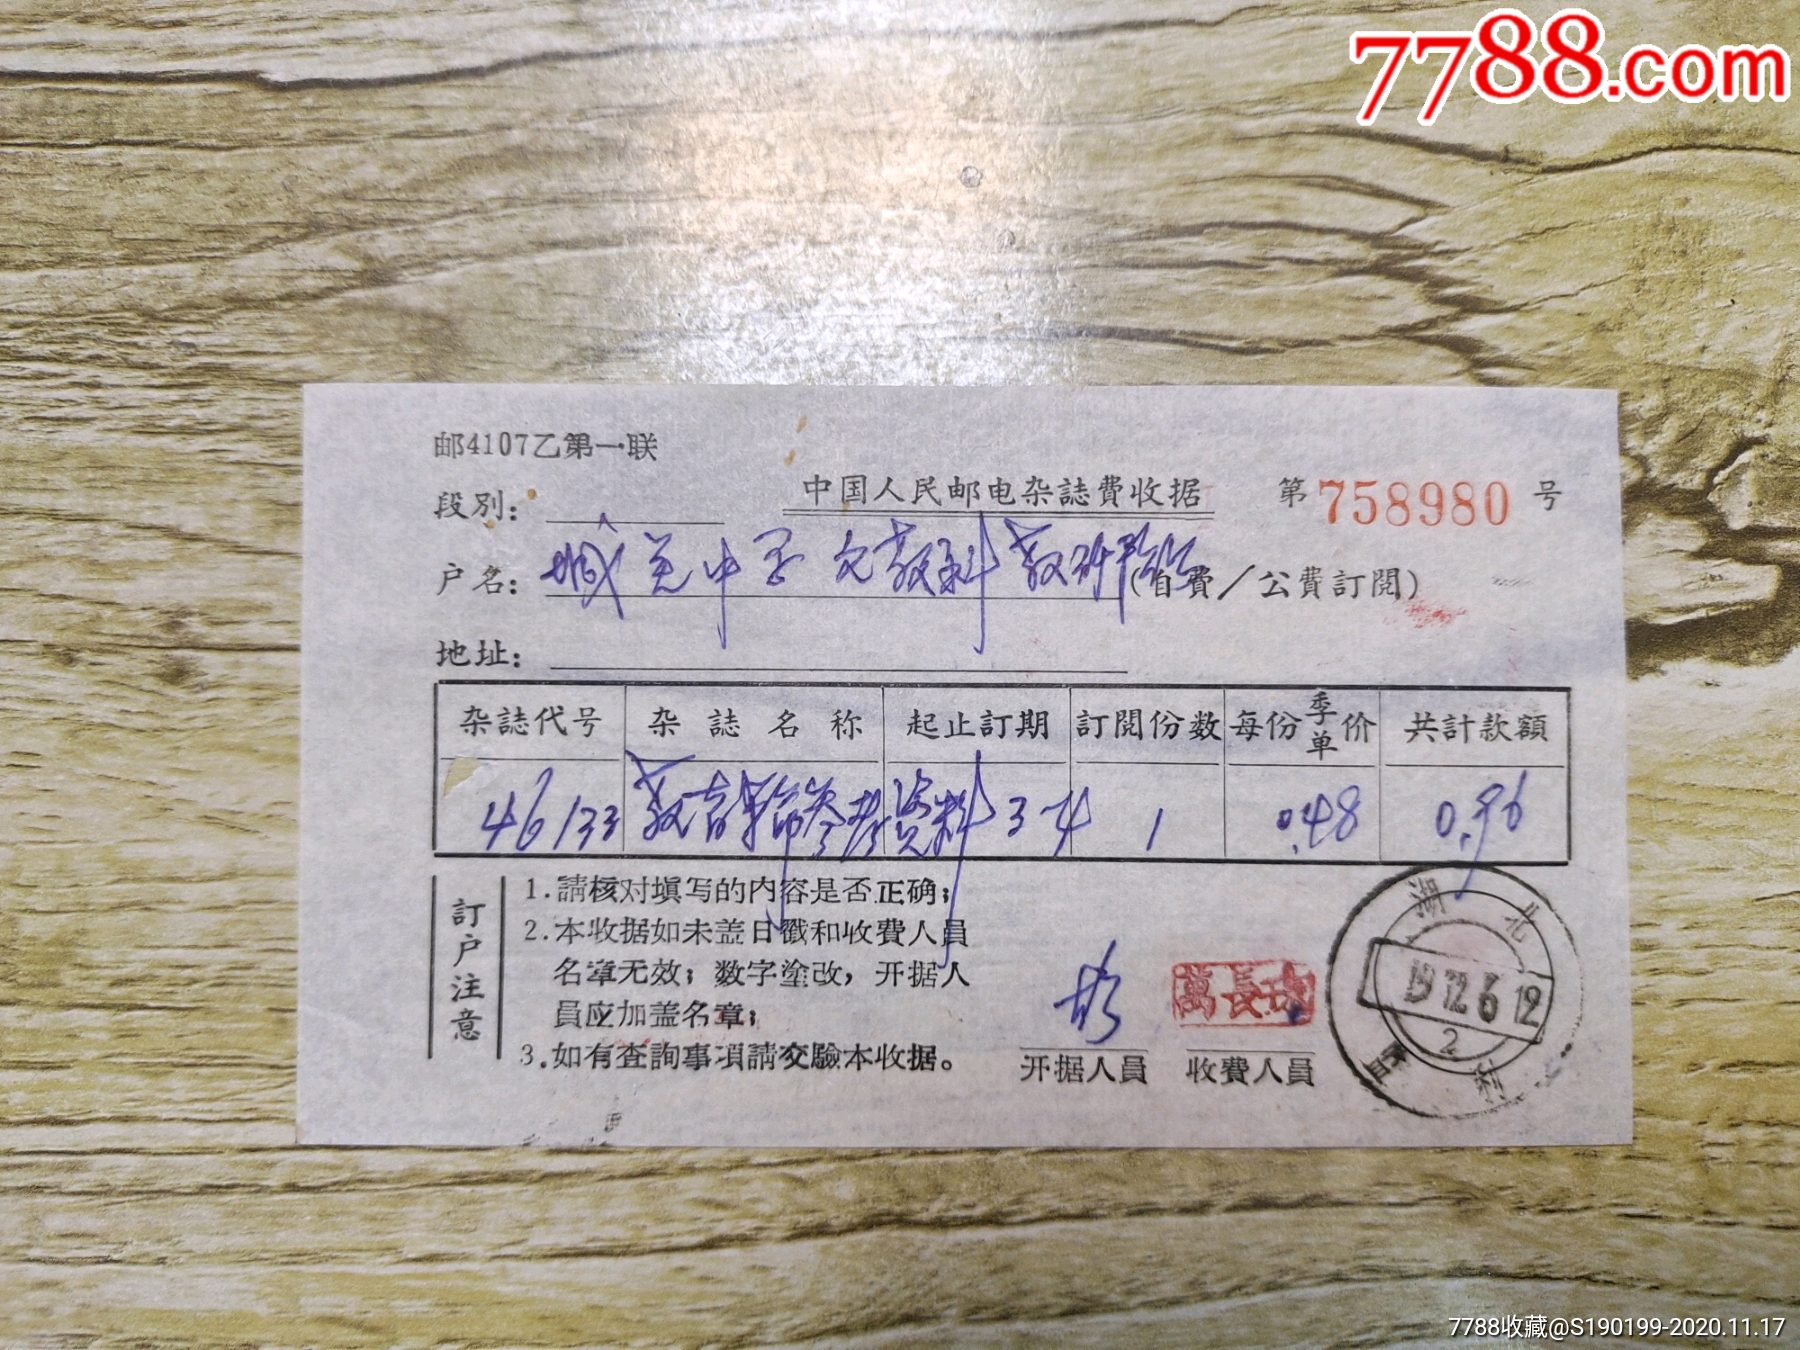 7788.com
邮4107乙第一联
中国人民邮电杂誌費收据
第758980号
段別:
户名: 城关中 文教科教研 (自費/公費訂閱)
地址:
杂誌代号 杂誌名称 起止訂期 訂閱份数 每份季单价 共計款額
46133 教育革命参考资料 3 1 0.48 0.96
訂户注意
1.請核对填写的内容是否正确;
2.本收据如未盖日戳和收費人員
名章无效;数字塗改,开据人
員应加盖名章;
3.如有查詢事項請交驗本收据。
萬長
开据人員 收費人員
湖北
12 6 12
2
利
7788收藏@S190199-2020.11.17